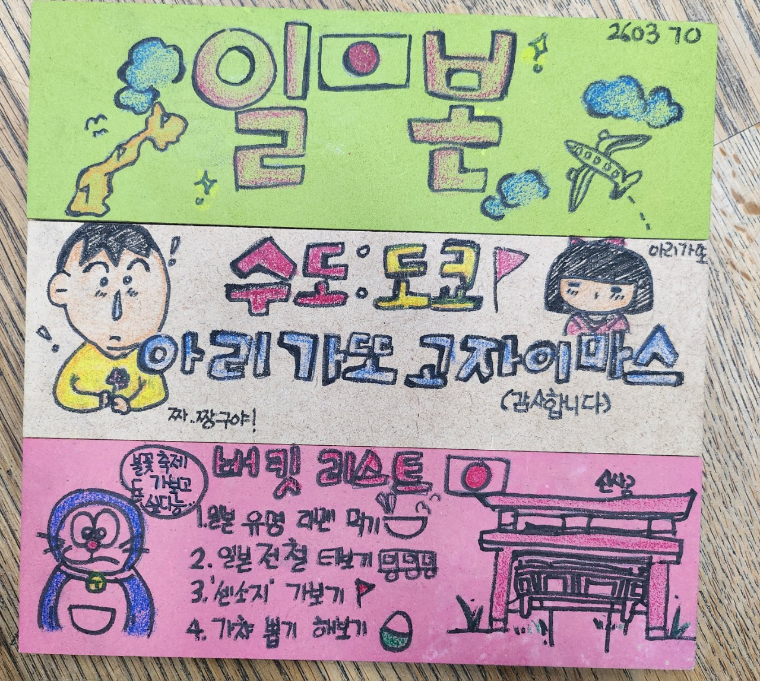 일본
2603 70
수도:도쿄
아리가또
아리가또 고자이마스
(감사합니다)
짜..짱구야!
불꽃 축제
도 가보고
버킷 리스트
1.일본 유명 라멘 먹기
2. 일본 전철 타보기
3.'센소지' 가보기
4. 가챠 뽑기 해보기